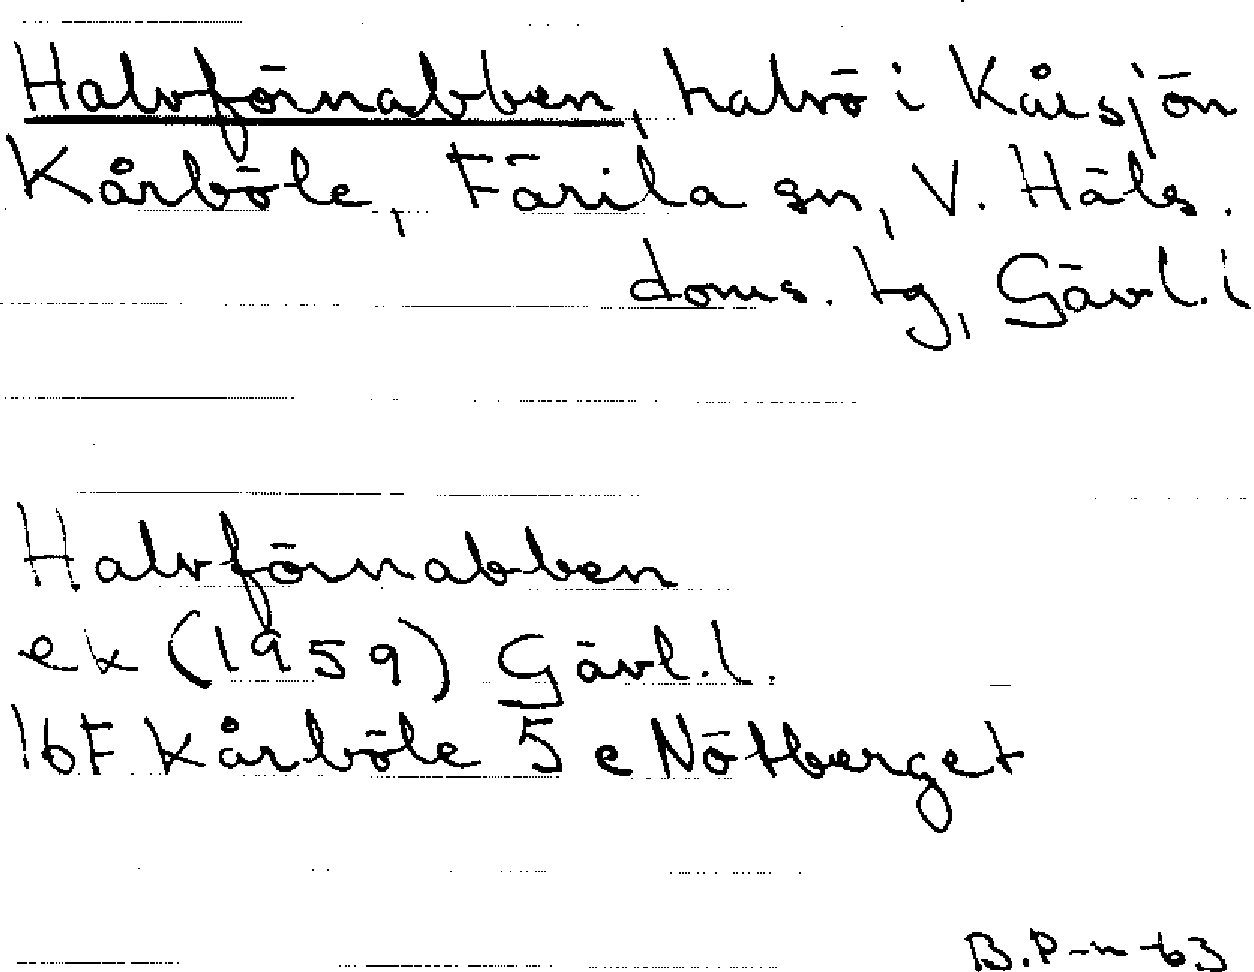 Halvförnabben, halvö i Kårsjön
Kårböle, Färila sn, V. Häls.
doms. tg, Gävl. l
Halvförnabben
ek (1959) Gävl. l.
16F Kårböle 5 e Nötberget
B. P-n -63